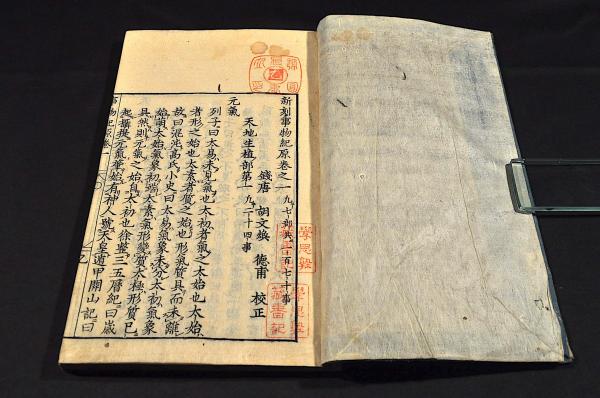 新刻事物紀原卷之一 凡七部共一百七十事
錢唐 胡文煥 德甫 校正
天地生植部第一 凡二十四事
元氣
列子曰太易未見氣也太初者氣之太始也太始
者形之始也太素者質之始也形氣質具而未離
故曰混沌高氏小史曰太易氣象未分太初氣象
始萌太始氣象初端太素氣形變質太極形質已
具然則元氣之始自太初也徐整三五曆紀曰歲
起攝提元氣肇始有神人號天皇遁甲開山記曰
事物紀原卷一
藏書記